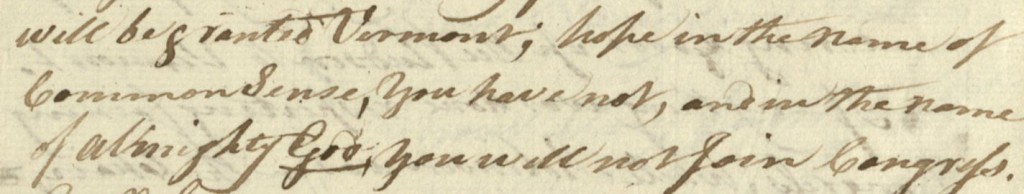 will be granted Vermont; hope in the name of
Common Sense, You have not, and in the name
of almighty God, You will not Join Congress.